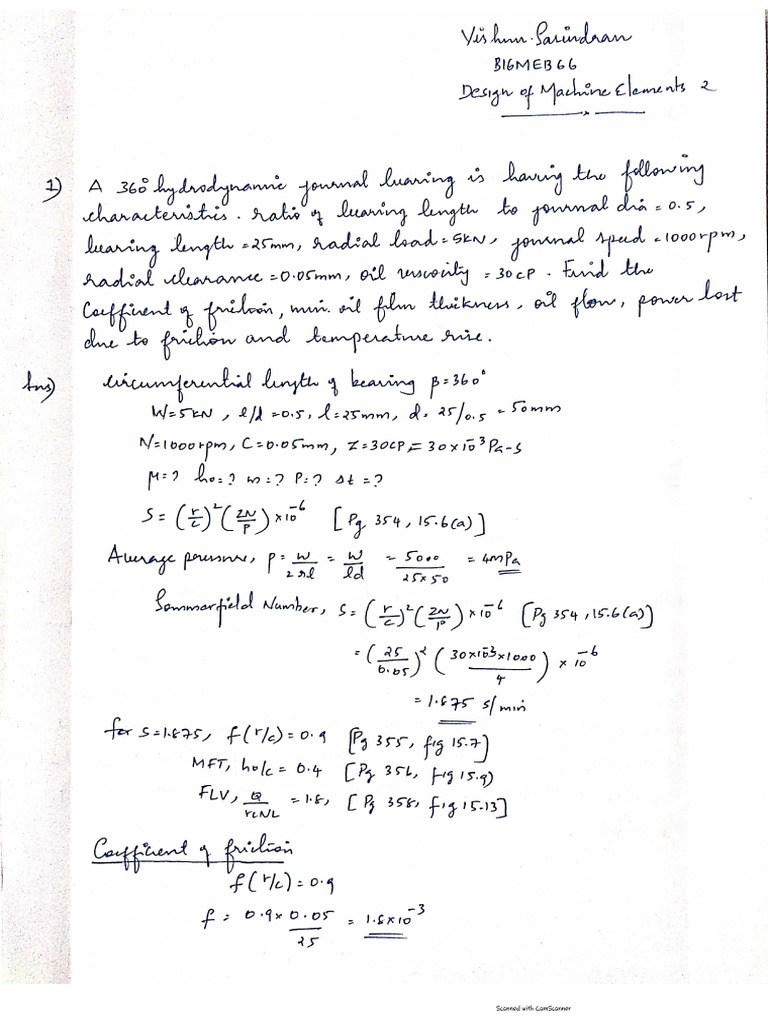 Vishnu.Sasindran
B16MEB66
Design of Machine Elements 2
1) A 360° hydrodynamic journal bearing is having the following
characteristics. ratio of bearing length to journal dia = 0.5,
bearing length = 25mm, radial load = 5kN, journal speed = 1000rpm,
radial clearance = 0.05mm, oil viscosity = 30CP. Find the
Coefficient of friction, min. oil film thickness, oil flow, power lost
due to friction and temperature rise.
Ans) circumferential length of bearing β=360°
W=5kN, l/d=0.5, l=25mm, d= 25/0.5 = 50mm
N=1000rpm, C=0.05mm, Z=30CP = 30×10⁻³ Pa-s
μ=? ho=? w=? P=? Δt=?
S= (r/c)² (ZN/P) ×10⁻⁶ [Pg 354, 15.6(a)]
Average pressure, P= W/2rl = W/ld = 5000/25×50 = 4MPa
Sommerfield Number, S= (r/c)² (ZN/P) ×10⁻⁶ [Pg 354, 15.6(a)]
= (25/0.05)² (30×10⁻³×1000/4) ×10⁻⁶
= 1.875 s/min
for S=1.875, f(r/c)=0.9 [Pg 355, fig 15.7]
MFT, ho/c = 0.4 [Pg 356, fig 15.9]
FLV, Q/rcNL = 1.8, [Pg 358, fig 15.13]
Coefficient of friction
f(r/c)=0.9
f= 0.9×0.05/25 = 1.8×10⁻³
Scanned with CamScanner